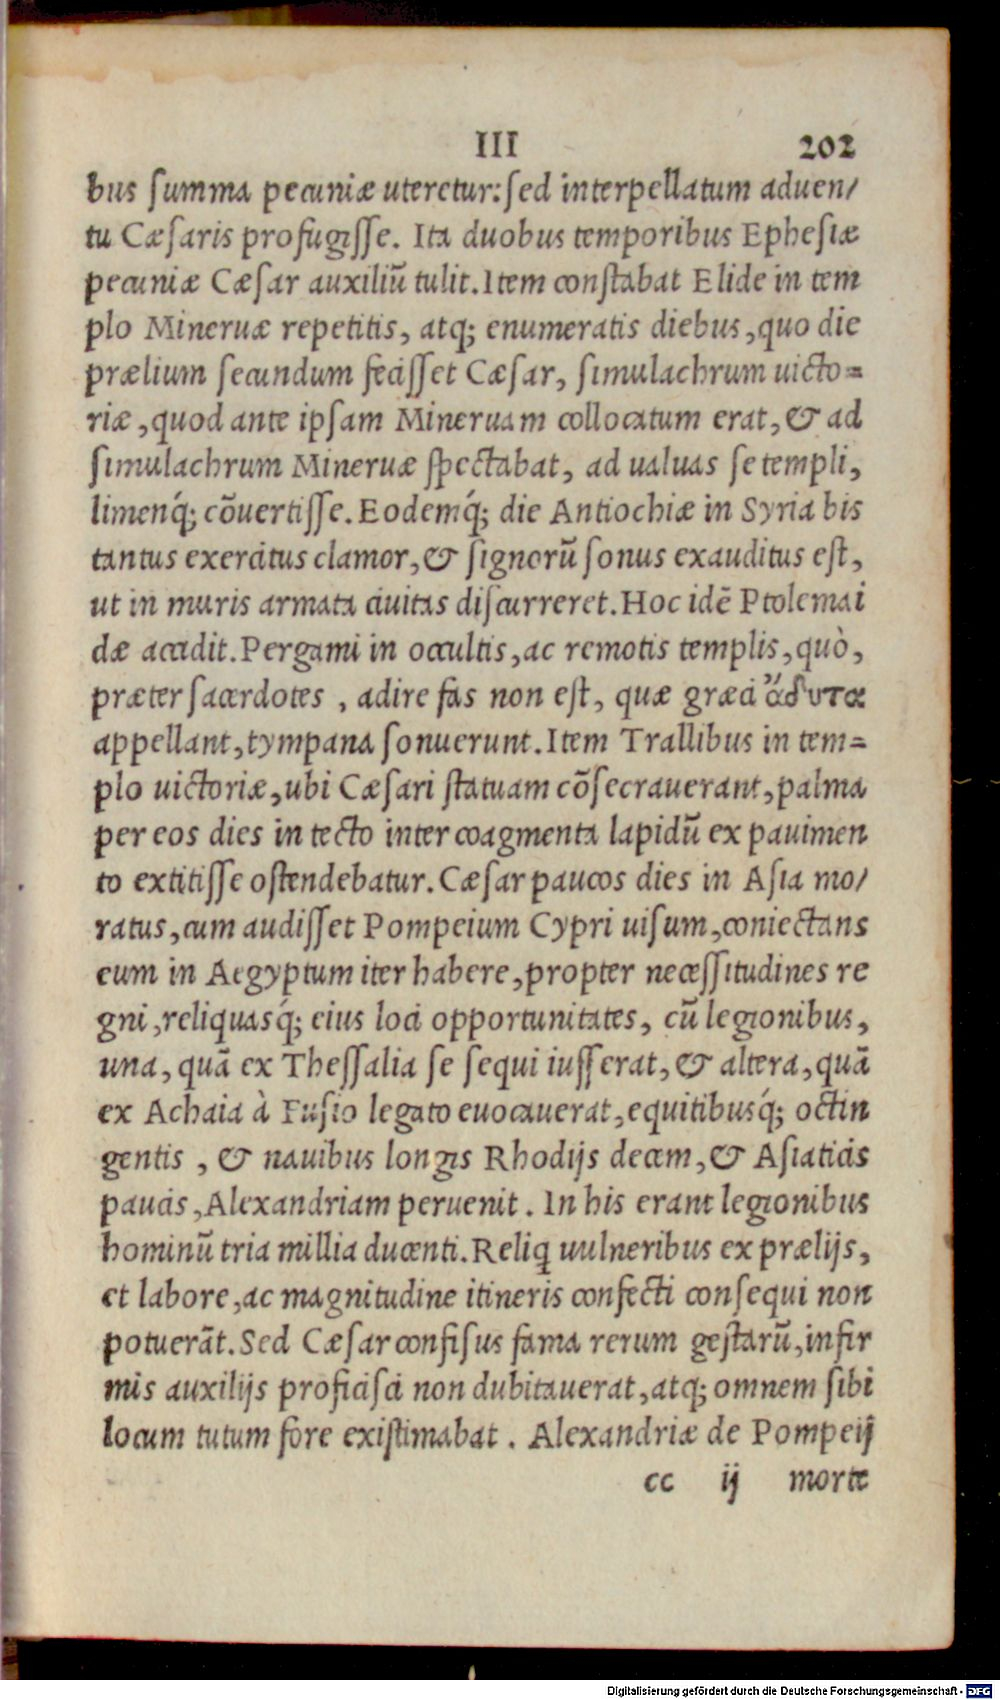 III 202
bus ſumma pecuniæ uteretur: ſed interpellatum aduen/
tu Cæſaris profugiſſe. Ita duobus temporibus Epheſiæ
pecuniæ Cæſar auxiliũ tulit. Item conſtabat Elide in tem
plo Mineruæ repetitis, atq; enumeratis diebus, quo die
prælium ſecundum feciſſet Cæſar, ſimulachrum uicto=
riæ, quod ante ipſam Mineruam collocatum erat, & ad
ſimulachrum Mineruæ ſpectabat, ad ualuas ſe templi,
limenq́; cõuertiſſe. Eodemq́; die Antiochiæ in Syria bis
tantus exercitus clamor, & ſignorũ ſonus exauditus eſt,
ut in muris armata ciuitas diſcurreret. Hoc idẽ Ptolemai
dæ accidit. Pergami in occultis, ac remotis templis, quò,
præter ſacerdotes, adire fas non eſt, quæ græci ἄδυτα
appellant, tympana ſonuerunt. Item Trallibus in tem=
plo uictoriæ, ubi Cæſari ſtatuam cõſecrauerant, palma
per eos dies in tecto inter coagmenta lapidũ ex pauimen
to extitiſſe oſtendebatur. Cæſar paucos dies in Aſia mo/
ratus, cum audiſſet Pompeium Cypri uiſum, coniectans
eum in Aegyptum iter habere, propter neceſſitudines re
gni, reliquasq́; eius loci opportunitates, cũ legionibus,
una, quã ex Theſſalia ſe ſequi iuſſerat, & altera, quã
ex Achaia à Fuſio legato euocauerat, equitibusq́; octin
gentis, & nauibus longis Rhodijs decem, & Aſiaticis
paucis, Alexandriam peruenit. In his erant legionibus
hominũ tria millia ducenti. Reliq uulneribus ex prælijs,
et labore, ac magnitudine itineris confecti conſequi non
potuerãt. Sed Cæſar confiſus fama rerum geſtarũ, infir
mis auxilijs proficiſci non dubitauerat, atq; omnem ſibi
locum tutum fore exiſtimabat. Alexandriæ de Pompeij
cc ij morte
Digitalisierung gefördert durch die Deutsche Forschungsgemeinschaft - DFG